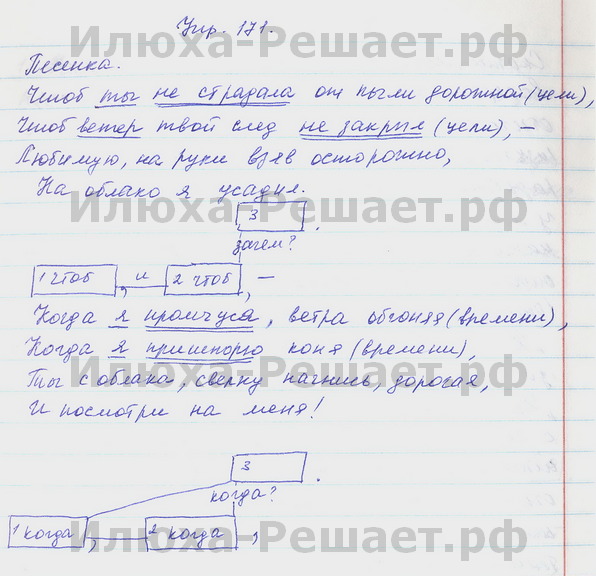 Упр. 171.
Илюха-Решает.рф
Песенка.
Чтоб ты не страдала от пыли дорожной (цели),
Чтоб ветер твой след не закрыл (цели), –
Любимую, на руки взяв осторожно,
На облако я усадил.
Илюха-Решает.рф
3
.
зачем?
1 чтоб , и 2 чтоб , –
Когда я промчуся, ветра обгоняя (времени),
Когда я пришпорю коня (времени),
Илюха-Решает.рф
Ты с облака, сверху нагнись, дорогая,
И посмотри на меня!
3
.
когда?
1 когда , 2 когда ,
Илюха-Решает.рф